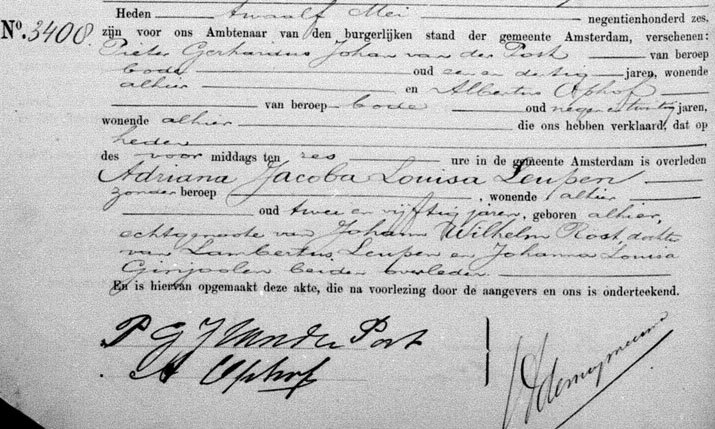 Heden twaalf Mei negentienhonderd zes,
No. 3408. zijn voor ons Ambtenaar van den burgerlijken stand der gemeente Amsterdam, verschenen:
Pieter Gerhardus Johan van der Post van beroep
bode oud een en dertig jaren, wonende
alhier en Albertus Ophof
van beroep bode oud negen en twintig jaren,
wonende alhier die ons hebben verklaard, dat op
heden
des voor middags ten zes ure in de gemeente Amsterdam is overleden
Adriana Jacoba Louisa Leupen
zonder beroep, wonende alhier
oud twee en vijftig jaren, geboren alhier,
echtgenoote van Johann Wilhelm Rost, dochter
van Lambertus Leupen en Johanna Louisa
beiden overleden
En is hiervan opgemaakt deze akte, die na voorlezing door de aangevers en ons is onderteekend.
P G J van der Post
A Ophof